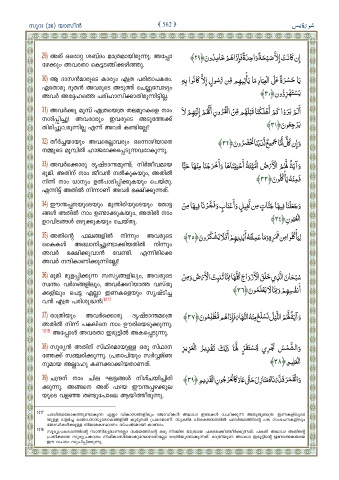 സൂറ: (36) യാസീൻ ﴾ 562 ﴿ سُورَةُ يس
29) അത് ഒരൊറ്റ ശബ്ദം മാത്രമായിരുന്നു. അപ്പോ
ഴേക്കും അവരതാ കെട്ടടങ്ങിക്കഴിഞ്ഞു.
إِن كَانَتْ إِلَّا صَيْحَةً وَاحِدَةً فَإِذَا هُمْ خَامِدُونَ ﴿٢٩﴾
30) ആ ദാസൻമാരുടെ കാര്യം എത്ര പരിതാപകരം.
ഏതൊരു ദൂതൻ അവരുടെ അടുത്ത് ചെല്ലുമ്പോഴും
അവർ അദ്ദേഹത്തെ പരിഹസിക്കാതിരുന്നിട്ടില്ല.
يَا حَسْرَةً عَلَى الْعِبَادِ مَا يَأْتِيهِم مِّن رَّسُولٍ إِلَّا كَانُوا بِهِ
يَسْتَهْزِئُونَ ﴿٣٠﴾
31) അവർക്കു മുമ്പ് എത്രയെത്ര തലമുറകളെ നാം
നശിപ്പിച്ചു! അവരാരും ഇവരുടെ അടുത്തേക്ക്
തിരിച്ചുവരുന്നില്ല എന്ന് അവർ കണ്ടില്ലേ?
أَلَمْ يَرَوْا كَمْ أَهْلَكْنَا قَبْلَهُم مِّنَ الْقُرُونِ أَنَّهُمْ إِلَيْهِمْ لَا
يَرْجِعُونَ ﴿٣١﴾
32) തീർച്ചയായും അവരെല്ലാവരും ഒന്നൊഴിയാതെ
നമ്മുടെ മുമ്പിൽ ഹാജരാക്കപ്പെടുന്നവരാകുന്നു.
وَإِن كُلٌّ لَّمَّا جَمِيعٌ لَّدَيْنَا مُحْضَرُونَ ﴿٣٢﴾
33) അവർക്കൊരു ദൃഷ്ടാന്തമുണ്ട്; നിർജീവമായ
ഭൂമി. അതിന് നാം ജീവൻ നൽകുകയും, അതിൽ
നിന്ന് നാം ധാന്യം ഉൽപാദിപ്പിക്കുകയും ചെയ്തു.
എന്നിട്ട് അതിൽ നിന്നാണ് അവർ ഭക്ഷിക്കുന്നത്.
وَآيَةٌ لَّهُمُ الْأَرْضُ الْمَيْتَةُ أَحْيَيْنَاهَا وَأَخْرَجْنَا مِنْهَا حَبًّا
فَمِنْهُ يَأْكُلُونَ ﴿٣٣﴾
34) ഈന്തപ്പനയുടെയും മുന്തിരിയുടെയും തോട്ട
ങ്ങൾ അതിൽ നാം ഉണ്ടാക്കുകയും, അതിൽ നാം
ഉറവിടങ്ങൾ ഒഴുക്കുകയും ചെയ്തു.
وَجَعَلْنَا فِيهَا جَنَّاتٍ مِّن نَّخِيلٍ وَأَعْنَابٍ وَفَجَّرْنَا فِيهَا مِنَ
الْعُيُونِ ﴿٣٤﴾
35) അതിന്റെ ഫലങ്ങളിൽ നിന്നും അവരുടെ
കൈകൾ അദ്ധ്വാനിച്ചുണ്ടാക്കിയതിൽ നിന്നും
അവർ ഭക്ഷിക്കുവാൻ വേണ്ടി. എന്നിരിക്കെ
അവർ നന്ദികാണിക്കുന്നില്ലേ?
لِيَأْكُلُوا مِن ثَمَرِهِ وَمَا عَمِلَتْهُ أَيْدِيهِمْ أَفَلَا يَشْكُرُونَ ﴿٣٥﴾
36) ഭൂമി മുളപ്പിക്കുന്ന സസ്യങ്ങളിലും, അവരുടെ
സ്വന്തം വർഗങ്ങളിലും, അവർക്കറിയാത്ത വസ്തു
ക്കളിലും പെട്ട എല്ലാ ഇണകളെയും സൃഷ്ടിച്ച
വൻ എത്ര പരിശുദ്ധൻ!
سُبْحَانَ الَّذِي خَلَقَ الْأَزْوَاجَ كُلَّهَا مِمَّا تُنبِتُ الْأَرْضُ وَمِنْ
أَنفُسِهِمْ وَمِمَّا لَا يَعْلَمُونَ ﴿٣٦﴾
37) രാത്രിയും അവർക്കൊരു ദൃഷ്ടാന്തമത്രെ
അതിൽ നിന്ന് പകലിനെ നാം ഊരിയെടുക്കുന്നു.
അപ്പോൾ അവരതാ ഇരുട്ടിൽ അകപ്പെടുന്നു.
وَآيَةٌ لَّهُمُ اللَّيْلُ نَسْلَخُ مِنْهُ النَّهَارَ فَإِذَا هُم مُّظْلِمُونَ ﴿٣٧﴾
38) സൂര്യൻ അതിന് സ്ഥിരമായുള്ള ഒരു സ്ഥാന
ത്തേക്ക് സഞ്ചരിക്കുന്നു. പ്രതാപിയും സർവ്വജ്ഞ
നുമായ അല്ലാഹു കണക്കാക്കിയതാണത്.
وَالشَّمْسُ تَجْرِي لِمُسْتَقَرٍّ لَّهَا ذَٰلِكَ تَقْدِيرُ الْعَزِيزِ
الْعَلِيمِ ﴿٣٨﴾
39) ചന്ദ്രന് നാം ചില ഘട്ടങ്ങൾ നിശ്ചയിച്ചിരി
ക്കുന്നു. അങ്ങനെ അത് പഴയ ഈന്തപ്പഴക്കുല
യുടെ വളഞ്ഞ തണ്ടുപോലെ ആയിത്തീരുന്നു.
وَالْقَمَرَ قَدَّرْنَاهُ مَنَازِلَ حَتَّىٰ عَادَ كَالْعُرْجُونِ الْقَدِيمِ ﴿٣٩﴾